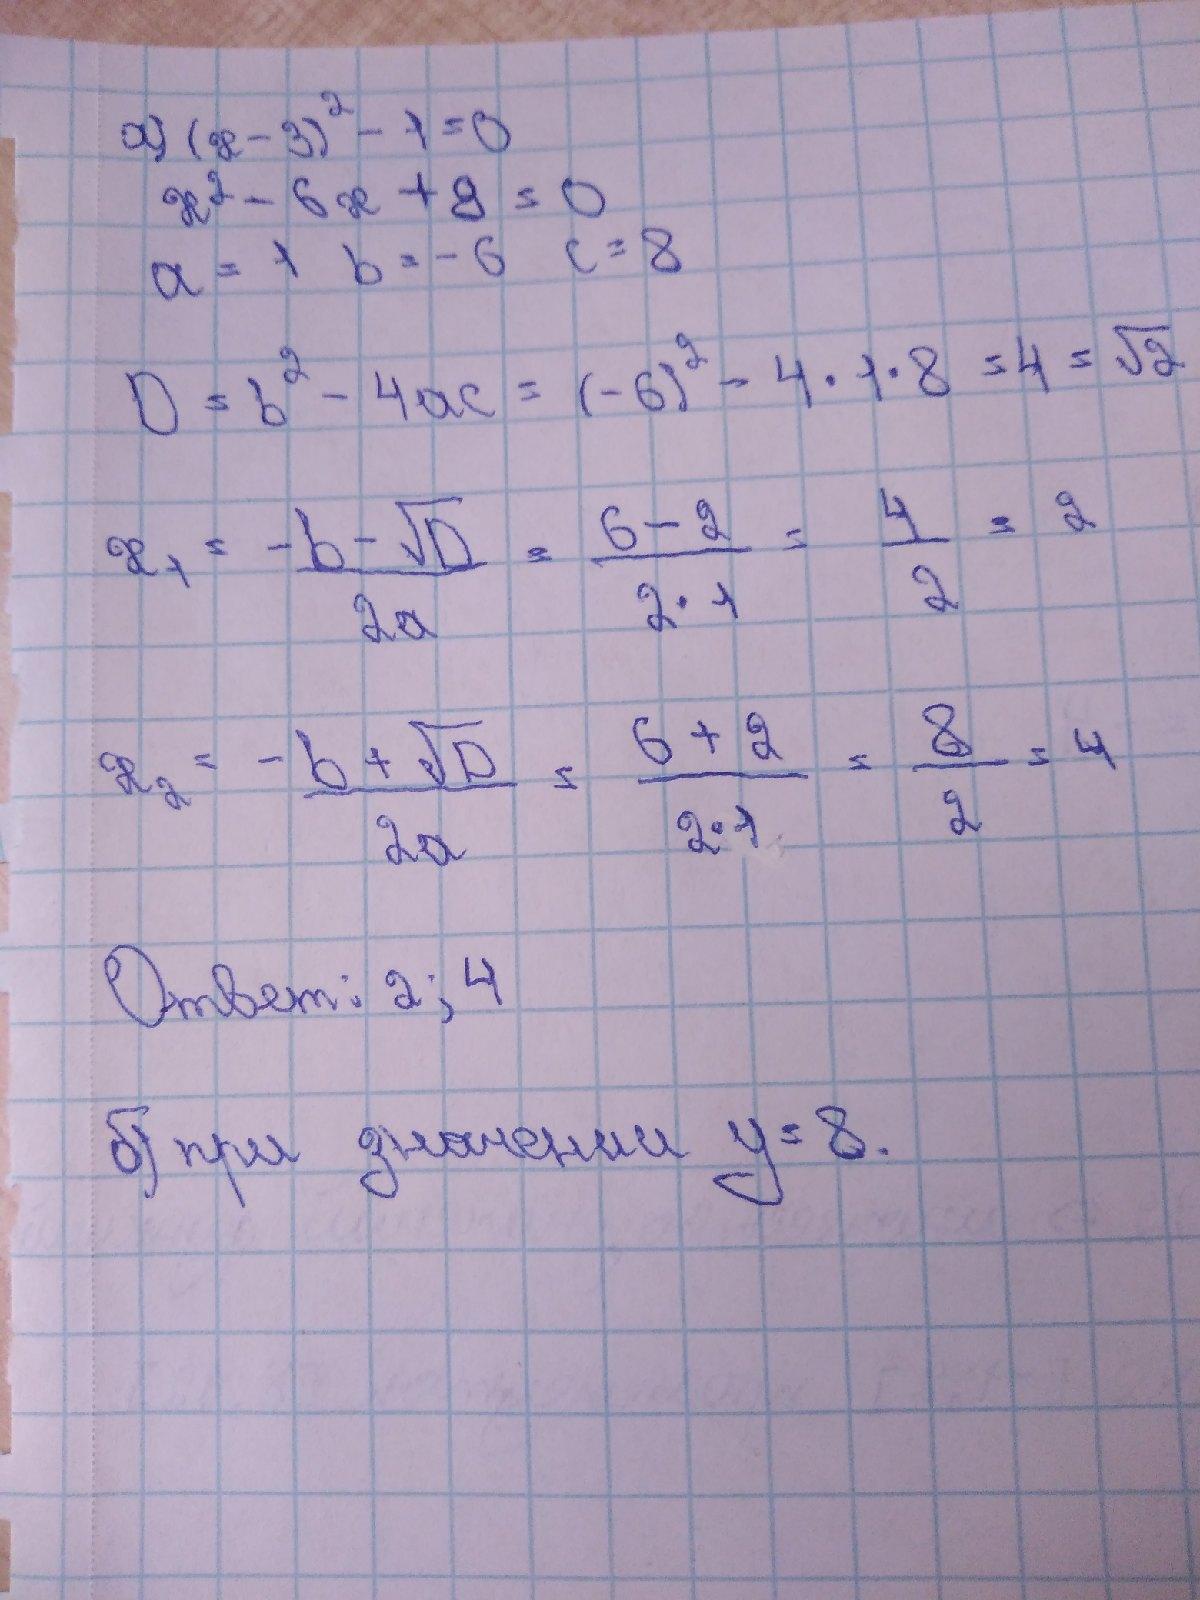 а) (x - 3)² - 1 = 0
x² - 6x + 8 = 0
a = 1 b = -6 c = 8
D = b² - 4ac = (-6)² - 4·1·8 = 4 = √2
x₁ = (-b - √D)/(2a) = (6 - 2)/(2·1) = 4/2 = 2
x₂ = (-b + √D)/(2a) = (6 + 2)/(2·1) = 8/2 = 4
Ответ: 2; 4
б) при значении y = 8.